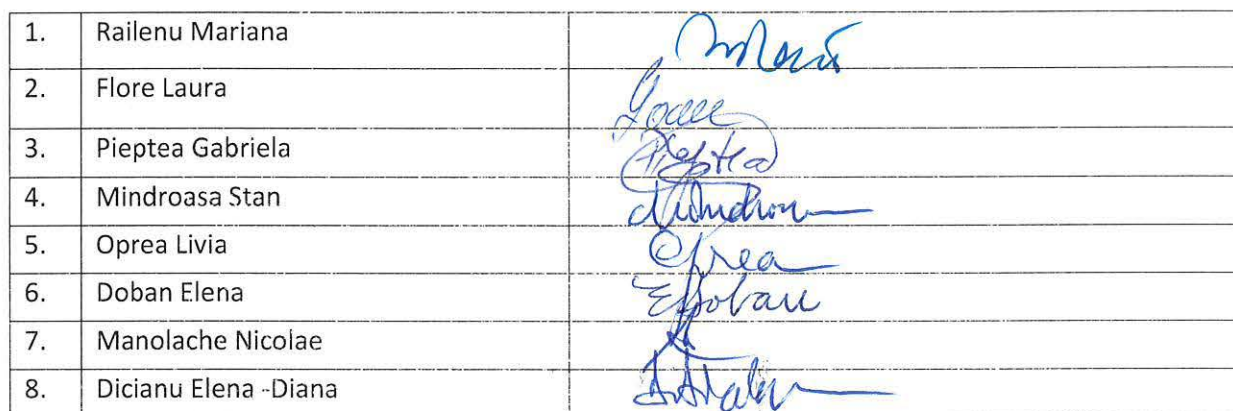 1. Railenu Mariana
2. Flore Laura
3. Pieptea Gabriela Pieptea
4. Mindroasa Stan
5. Oprea Livia Oprea
6. Doban Elena EDoban
7. Manolache Nicolae
8. Dicianu Elena -Diana